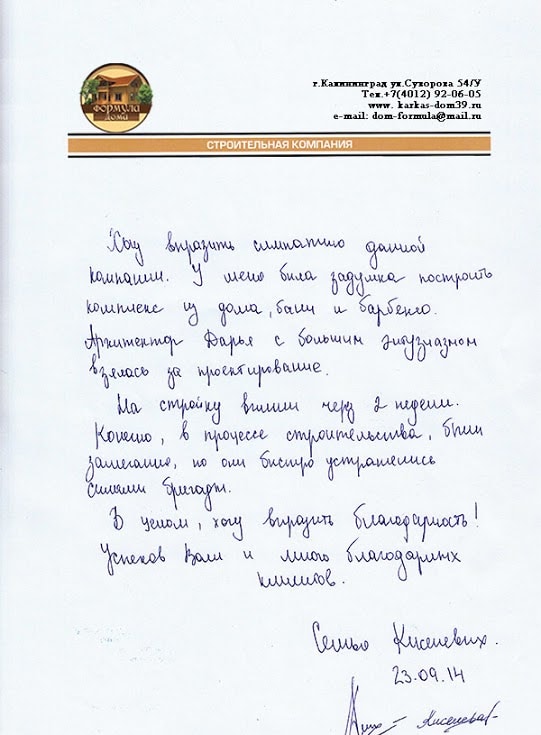 формула
дома
г.Калининград ул.Сухорова 54/У
Тел.+7(4012) 92-06-05
www. karkas-dom39.ru
e-mail: dom-formula@mail.ru
СТРОИТЕЛЬНАЯ КОМПАНИЯ
Хочу выразить симпатию данной
компании. У меня была задумка построить
комплекс из дома, бани и барбекю.
Архитектор Дарья с большим энтузиазмом
взялась за проектирование.
На стройку вышли через 2 недели.
Конечно, в процессе строительства, были
замечания, но они быстро устранялись
силами бригады.
В целом, хочу выразить благодарность!
Успехов Вам и много благодарных
клиентов.
Семья
23.09.14